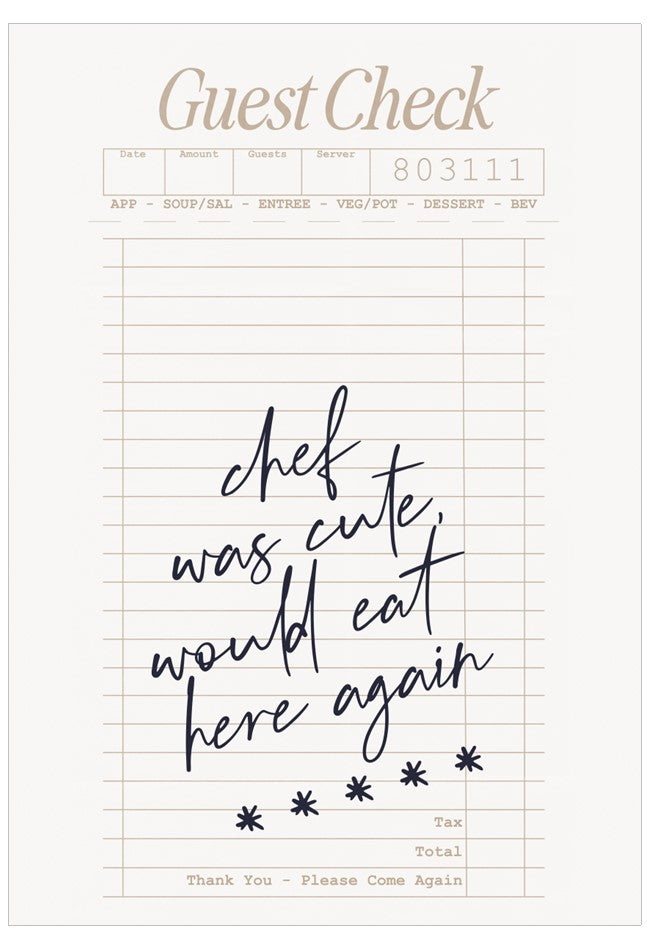 Guest Check
Date Amount Guests Server 803111
APP - SOUP/SAL - ENTREE - VEG/POT - DESSERT - BEV
chef
was cute,
would eat
here again
* * * * *
Tax
Total
Thank You - Please Come Again